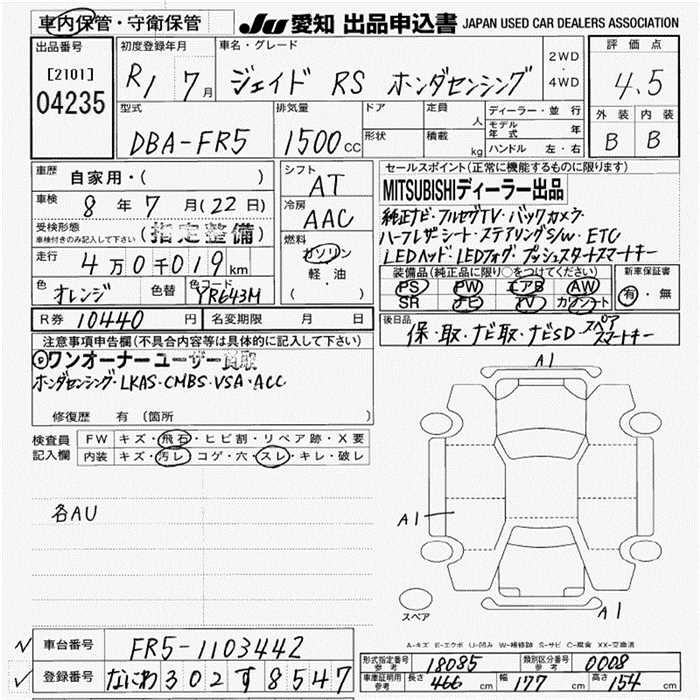 車内保管・守衛保管 JU 愛知 出品申込書 JAPAN USED CAR DEALERS ASSOCIATION
出品番号
[2101]
04235
初度登録年月
R1 7月
車名・グレード
ジェイド RS ホンダセンシング
2WD
・
4WD
評価点
4.5
外装 内装
B B
型式
DBA-FR5
排気量
1500cc
ドア
形状
定員 人
積載 kg
ディーラー・並行
モデル年式 年
ハンドル 左・右
車歴 自家用・( )
車検 8年7月(22日)
受検形態
車検付きのみ記入して下さい (指定整備)
走行 4万0千019km
色 オレンジ 色替 色コード YR643M
シフト
AT
冷房
AAC
燃料
ガソリン
軽油
( )
セールスポイント(正常に機能するものに限ります)
MITSUBISHIディーラー出品
純正ナビ・フルセグTV・バックカメラ
ハーフレザーシート・ステアリングS/W・ETC
LEDヘッド・LEDフォグ・プッシュスタートスマートキー
装備品(純正品に限り○をつけてください)
PS PW エアB AW
SR ナビ TV カワシート
新車保証書
有・無
R券 10440円 名変期限 月 日
後日品 保・取・ナビ取・ナビSD・スペアスマートキー
注意事項申告欄(不具合内容等は具体的に記入して下さい)
ワンオーナー ユーザー買取
ホンダセンシング・LKAS・CMBS・VSA・ACC
修復歴 有(箇所
検査員
記入欄
FW キズ・飛石・ヒビ割・リペア跡・X要
内装 キズ・汚レ・コゲ・穴・スレ・キレ・破レ
各AU
A1
A1
スペア
A1
A-キズ E-エクボ U-凹み W-補修跡 S-サビ C-腐食 XX-交換済
車台番号 FR5-1103442
登録番号 なにわ302す8547
形式指定番号
参考 18085 類別区分番号
参考 0008
車庫証明用
参考 長さ 466cm 幅 177cm 高さ 154cm